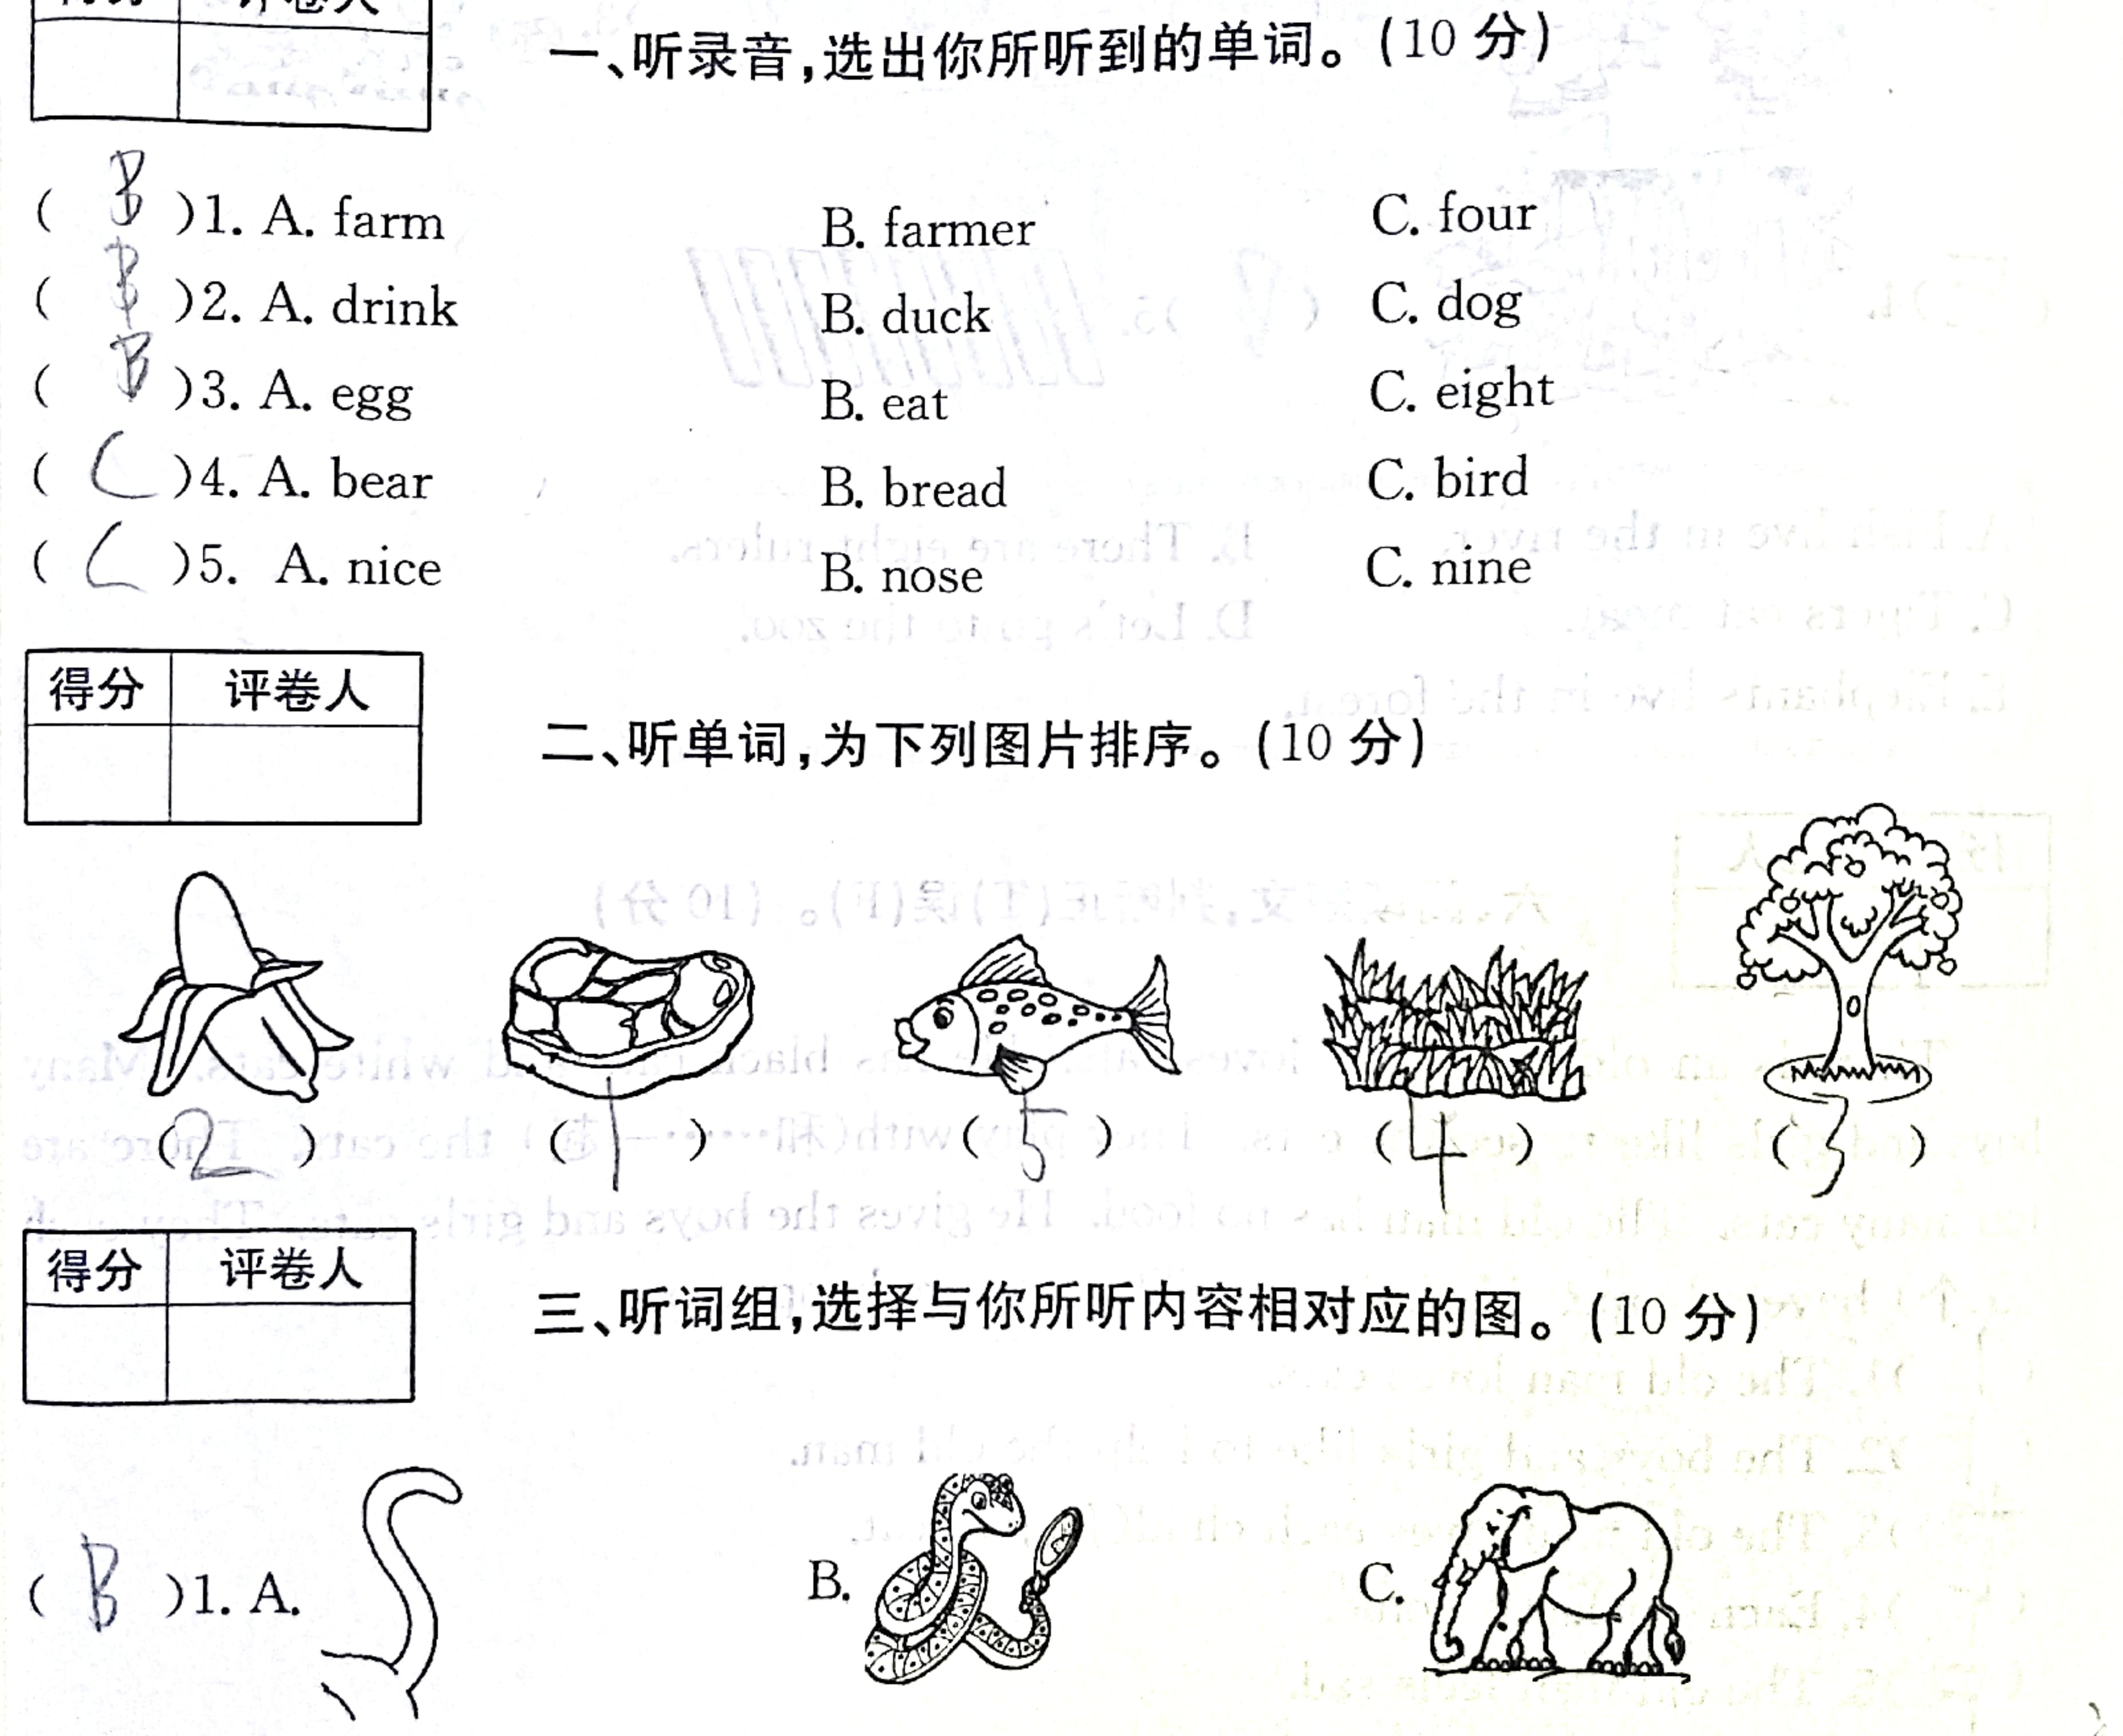 一、听录音,选出你所听到的单词。(10 分)
( B )1. A. farm B. farmer C. four
( B )2. A. drink B. duck C. dog
( B )3. A. egg B. eat C. eight
( C )4. A. bear B. bread C. bird
( C )5. A. nice B. nose C. nine
得分 评卷人
二、听单词,为下列图片排序。(10 分)
(2) (1) (5) (4) (3)
得分 评卷人
三、听词组,选择与你所听内容相对应的图。(10 分)
( B )1. A. B. C.